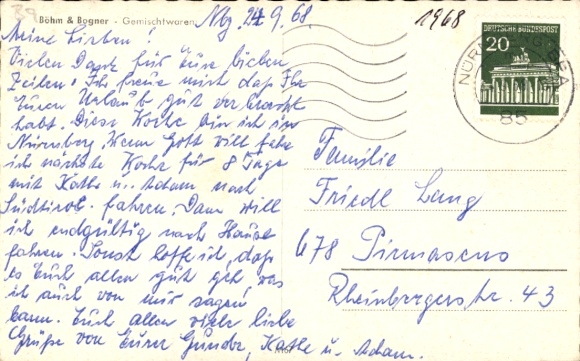 Böhm & Bogner - Gemischtwaren
Nbg. 24.9.68.
1968
DEUTSCHE BUNDESPOST
20
NÜRNBERG
85
Meine Lieben!
Vielen Dank für Eure lieben
Zeilen. Ich freue mich daß Ihr
Euren Urlaub gut verbracht
habt. Diese Woche bin ich in
Nürnberg. Wenn Gott will fahre
ich nächste Woche für 8 Tage
mit Kathe u. Adam nach
Südtirol fahren. Dann will
ich endgültig nach Hause
fahren. Sonst hoffe ich, daß
es Euch allen gut geht, was
ich auch von mir sagen
kann. Euch allen viele liebe
Grüße von Eurer Gunda, Kathe u. Adam.
Familie
Friedl Lang
678 Pirmasens
Rheinbergerstr. 43